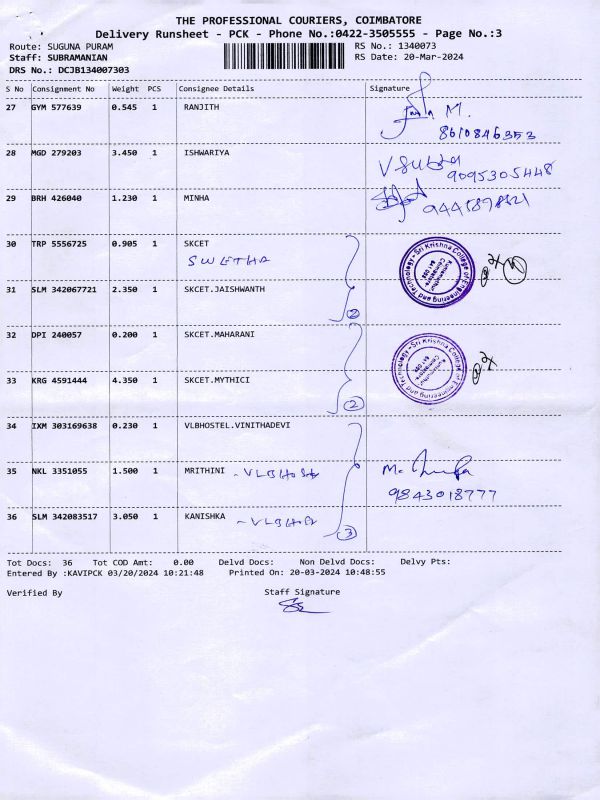 THE PROFESSIONAL COURIERS, COIMBATORE
Delivery Runsheet - PCK - Phone No.:0422-3505555 - Page No.:3
Route: SUGUNA PURAM RS No.: 1340073
Staff: SUBRAMANIAN RS Date: 20-Mar-2024
DRS No.: DCJB134007303
S No Consignment No Weight PCS Consignee Details Signature
27 GYM 577639 0.545 1 RANJITH
M.
8610846353
28 MGD 279203 3.450 1 ISHWARIYA
9095305448
29 BRH 426040 1.230 1 MINHA
30 TRP 5556725 0.905 1 SKCET
SWETHA
Sri Krishna College of Engineering and Technology
Kuniamuthur
Coimbatore
641 008
31 SLM 342067721 2.350 1 SKCET.JAISHWANTH
2
32 DPI 240057 0.200 1 SKCET.MAHARANI
Sri Krishna College of Engineering and Technology
Kuniamuthur
Coimbatore
641 008
33 KRG 4591444 4.350 1 SKCET.MYTHICI
2
34 IXM 303169638 0.230 1 VLBHOSTEL.VINITHADEVI
35 NKL 3351055 1.500 1 MRITHINI
9843018777
36 SLM 342083517 3.050 1 KANISHKA
3
Tot Docs: 36 Tot COD Amt: 0.00 Delvd Docs: Non Delvd Docs: Delvy Pts:
Entered By :KAVIPCK 03/20/2024 10:21:48 Printed On: 20-03-2024 10:48:55
Verified By Staff Signature